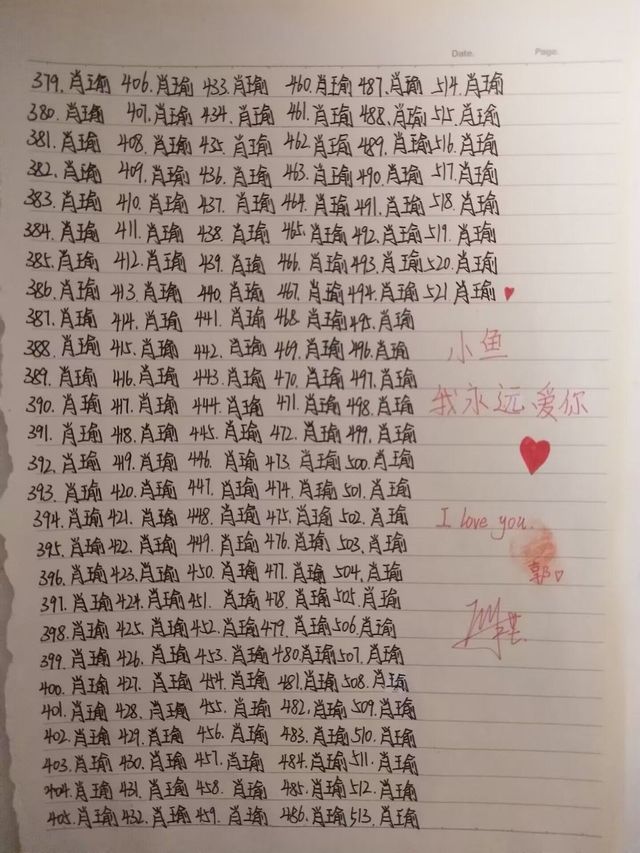 Date. Page.
379. 肖瑜 406. 肖瑜 433. 肖瑜 460. 肖瑜 487. 肖瑜 514. 肖瑜
380. 肖瑜 407. 肖瑜 434. 肖瑜 461. 肖瑜 488. 肖瑜 515. 肖瑜
381. 肖瑜 408. 肖瑜 435. 肖瑜 462. 肖瑜 489. 肖瑜 516. 肖瑜
382. 肖瑜 409. 肖瑜 436. 肖瑜 463. 肖瑜 490. 肖瑜 517. 肖瑜
383. 肖瑜 410. 肖瑜 437. 肖瑜 464. 肖瑜 491. 肖瑜 518. 肖瑜
384. 肖瑜 411. 肖瑜 438. 肖瑜 465. 肖瑜 492. 肖瑜 519. 肖瑜
385. 肖瑜 412. 肖瑜 439. 肖瑜 466. 肖瑜 493. 肖瑜 520. 肖瑜
386. 肖瑜 413. 肖瑜 440. 肖瑜 467. 肖瑜 494. 肖瑜 521 肖瑜
387. 肖瑜 414. 肖瑜 441. 肖瑜 468. 肖瑜 495. 肖瑜
388. 肖瑜 415. 肖瑜 442. 肖瑜 469. 肖瑜 496. 肖瑜 小鱼
389. 肖瑜 416. 肖瑜 443. 肖瑜 470. 肖瑜 497. 肖瑜
390. 肖瑜 417. 肖瑜 444. 肖瑜 471. 肖瑜 498. 肖瑜 我永远爱你
391. 肖瑜 418. 肖瑜 445. 肖瑜 472. 肖瑜 499. 肖瑜
392. 肖瑜 419. 肖瑜 446. 肖瑜 473. 肖瑜 500. 肖瑜
393. 肖瑜 420. 肖瑜 447. 肖瑜 474. 肖瑜 501. 肖瑜
394. 肖瑜 421. 肖瑜 448. 肖瑜 475. 肖瑜 502. 肖瑜 I love you.
395. 肖瑜 422. 肖瑜 449. 肖瑜 476. 肖瑜 503. 肖瑜
396. 肖瑜 423. 肖瑜 450. 肖瑜 477. 肖瑜 504. 肖瑜 郭
397. 肖瑜 424. 肖瑜 451. 肖瑜 478. 肖瑜 505. 肖瑜
398. 肖瑜 425. 肖瑜 452. 肖瑜 479. 肖瑜 506. 肖瑜
399. 肖瑜 426. 肖瑜 453. 肖瑜 480. 肖瑜 507. 肖瑜
400. 肖瑜 427. 肖瑜 454. 肖瑜 481. 肖瑜 508. 肖瑜
401. 肖瑜 428. 肖瑜 455. 肖瑜 482. 肖瑜 509. 肖瑜
402. 肖瑜 429. 肖瑜 456. 肖瑜 483. 肖瑜 510. 肖瑜
403. 肖瑜 430. 肖瑜 457. 肖瑜 484. 肖瑜 511. 肖瑜
404. 肖瑜 431. 肖瑜 458. 肖瑜 485. 肖瑜 512. 肖瑜
405. 肖瑜 432. 肖瑜 459. 肖瑜 486. 肖瑜 513. 肖瑜